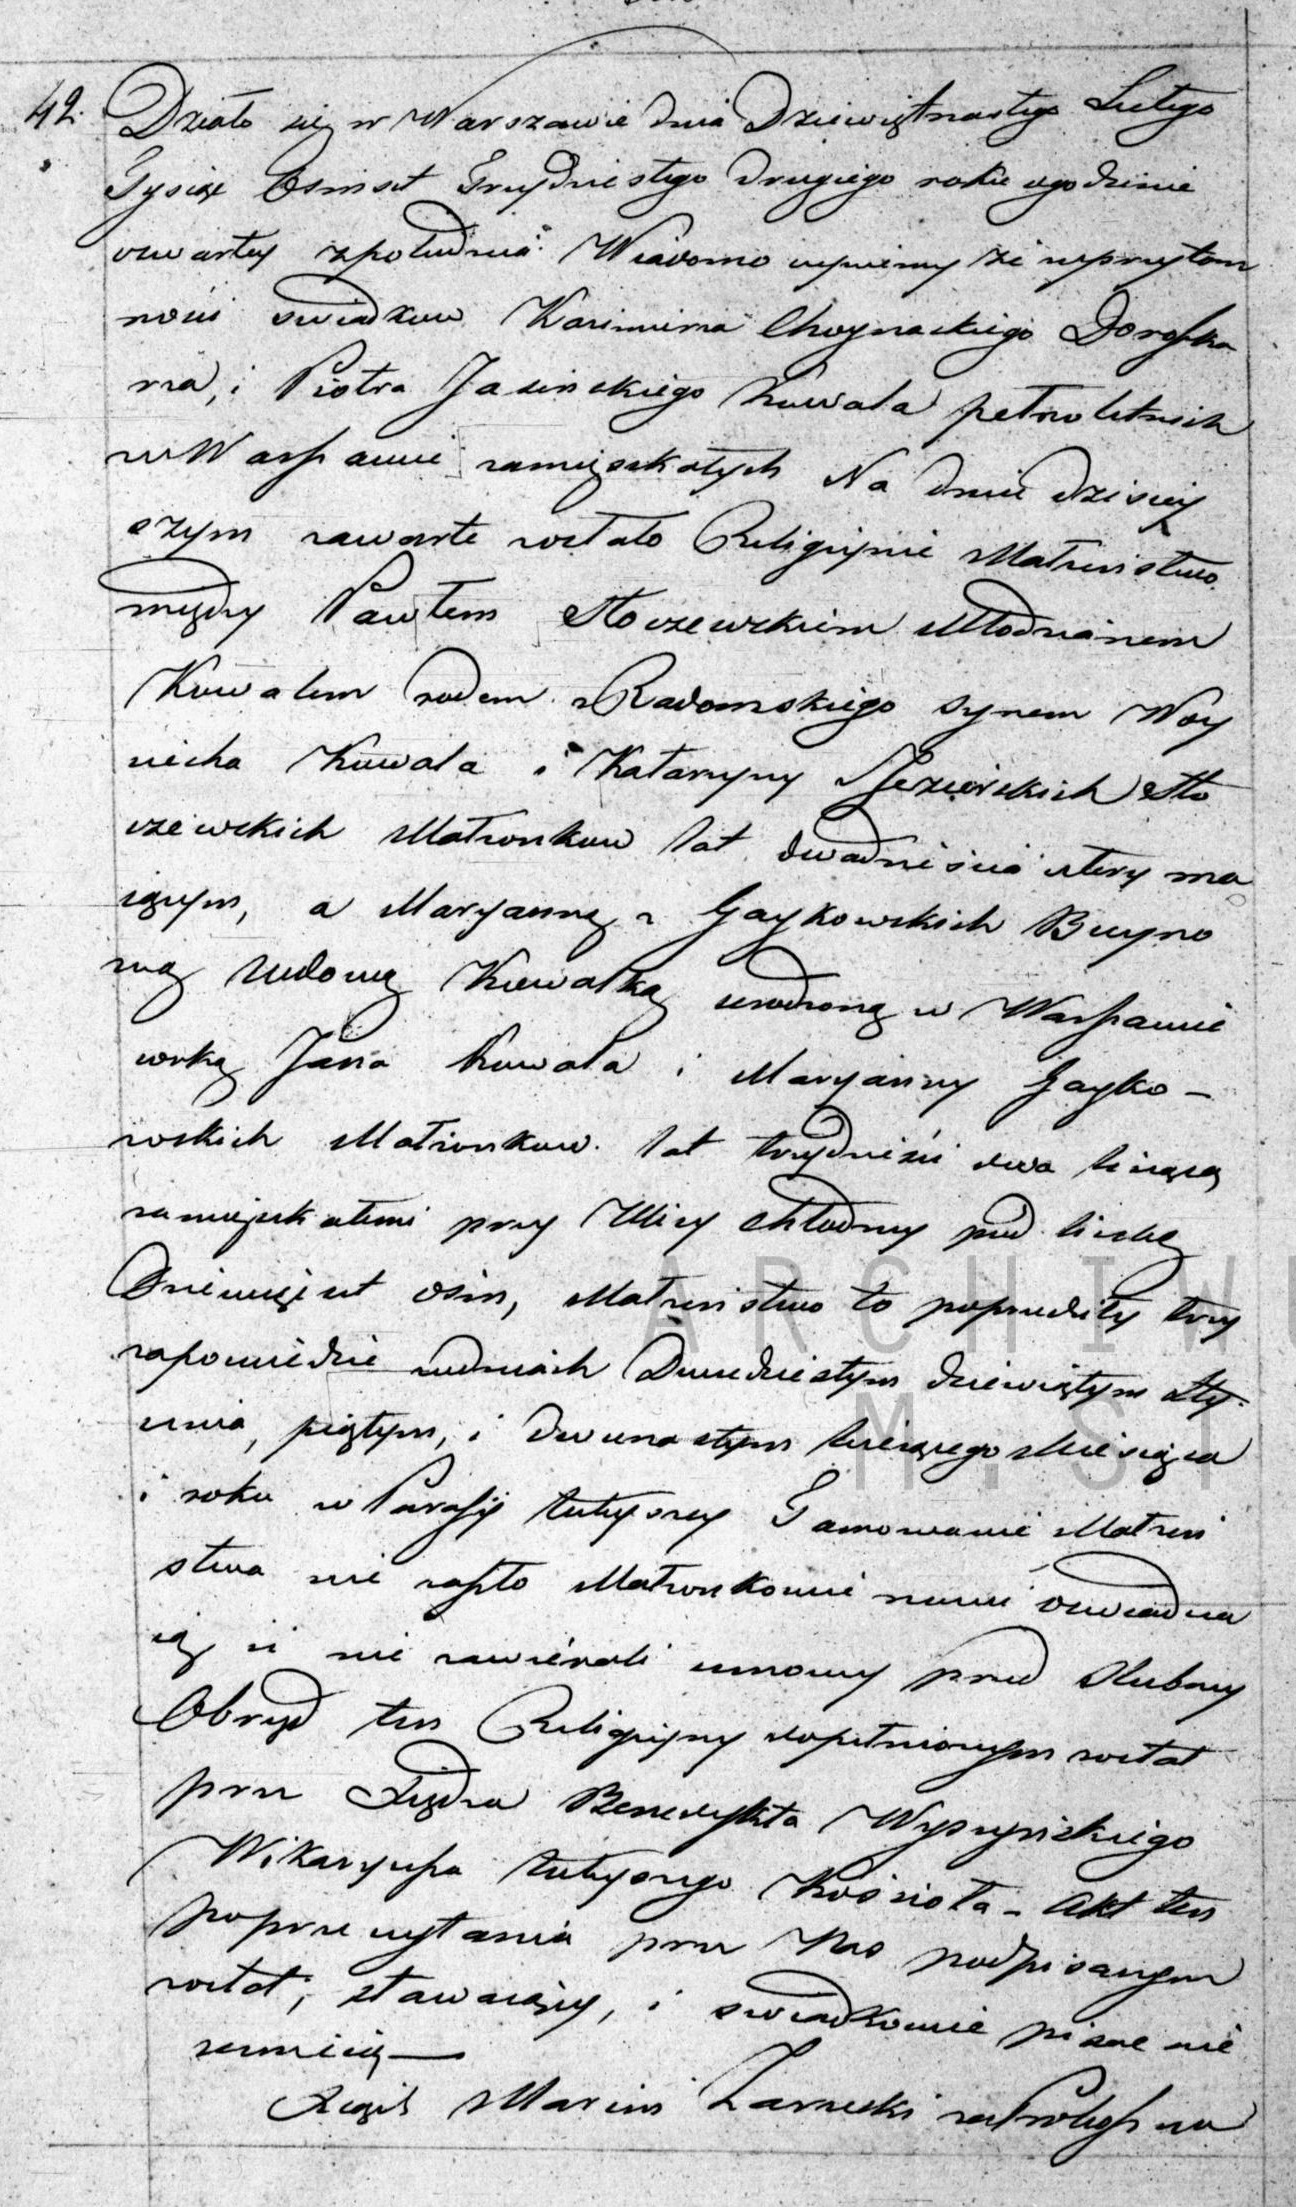 42. Działo się w Warszawie dnia Dziewiętnastego Lutego
Tysiąc Osmset Trzydziestego Drugiego roku ogodzinie
czwartey zpołudnia. Wiadomo czyniemy że wprzytom
ności swiadkow Kazimierza Choynackiego Doroszka
rza, i Piotra Jasinskiego Kowala pełnoletnich
w Warszawie zamięszkałych Na dniu dzisiey
szym zawarte zostało Religiynie Małżeństwo
między Pawłem Stoczewskiem Młodzianem
Kowalem rodem z Radomskiego synem Woy
ciecha Kowala i Katarzyny Jezierskich Sto
czewskich Małżonkow lat dwadzieścia cztery ma
iącym, a Maryanną z Gaykowskich Buyno
wą Wdową Kowalką urodzoną w Warszawie
corką Jana Kowala i Maryanny Gayko-
wskich Małżonkow lat trzydzieści dwa liczącą
zamięszkałemi przy Ulicy Chłodney pod liczbą
Dziewięćset ośm, Małżeństwo to poprzedziły trzy
zapowiedzie wdniach Dwudziestym dziewiątym Sty-
cznia, piątym, i dwunastym bieżącego Miesiąca
i roku w Parafij tuteyszey Tamowanie Małżeń
stwa nie zaszło Małżonkowie nowi oswiadcza
ią iż nie zawierali umowy przed slubney
Obrząd ten Religiyny dopełnionym został
przez Xiędza Benedykta Wyszyńskiego
Wikaryusza tuteyszego Kościoła - Akt ten
poprzeczytaniu przez Nas podpisanym
został, stawaiący, i swiadkowie pisać nie
umieią —
Xiądz Marcin Zarzecki za Proboszcza
ARCHIW
M.ST